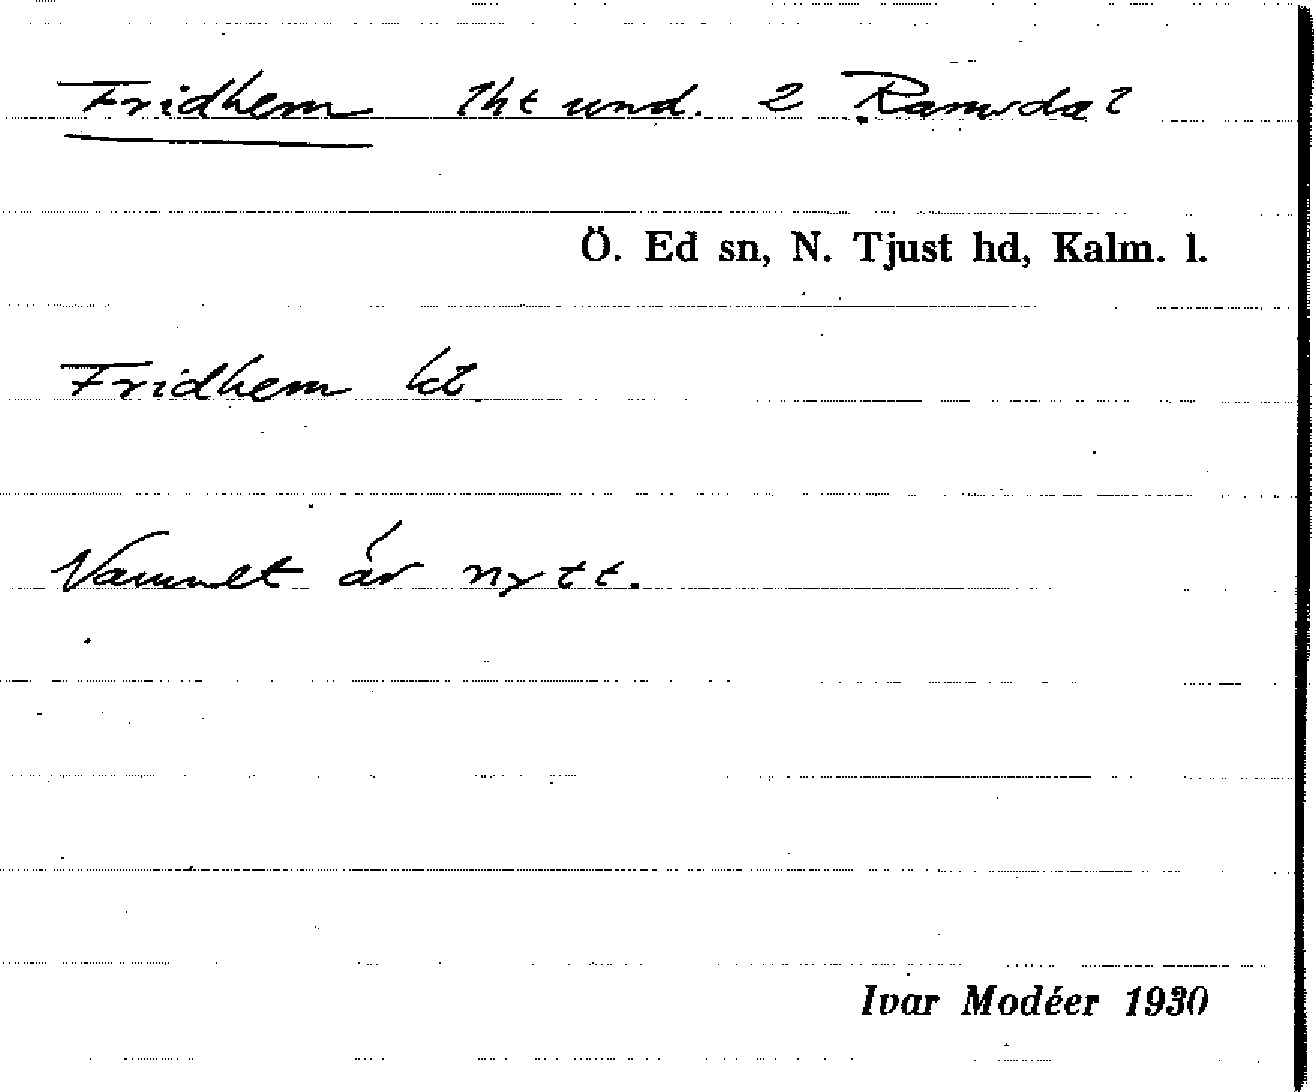 Fridhem lht und. 2 Ramsdal
Ö. Ed sn, N. Tjust hd, Kalm. l.
Fridhem
Namnet är nytt.
Ivar Modéer 1930